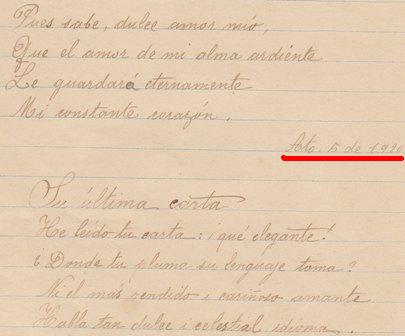 Pues sabe, dulce amor mío,
Que el amor de mi alma ardiente
Le guardará eternamente
Mi constante corazón.
5 de 1920
Su última carta
He leído tu carta: ¡qué elegante!
¿Donde tu pluma su lenguaje toma?
Ni el más rendido i cariñoso amante
Habla tan dulce i celestial idioma.